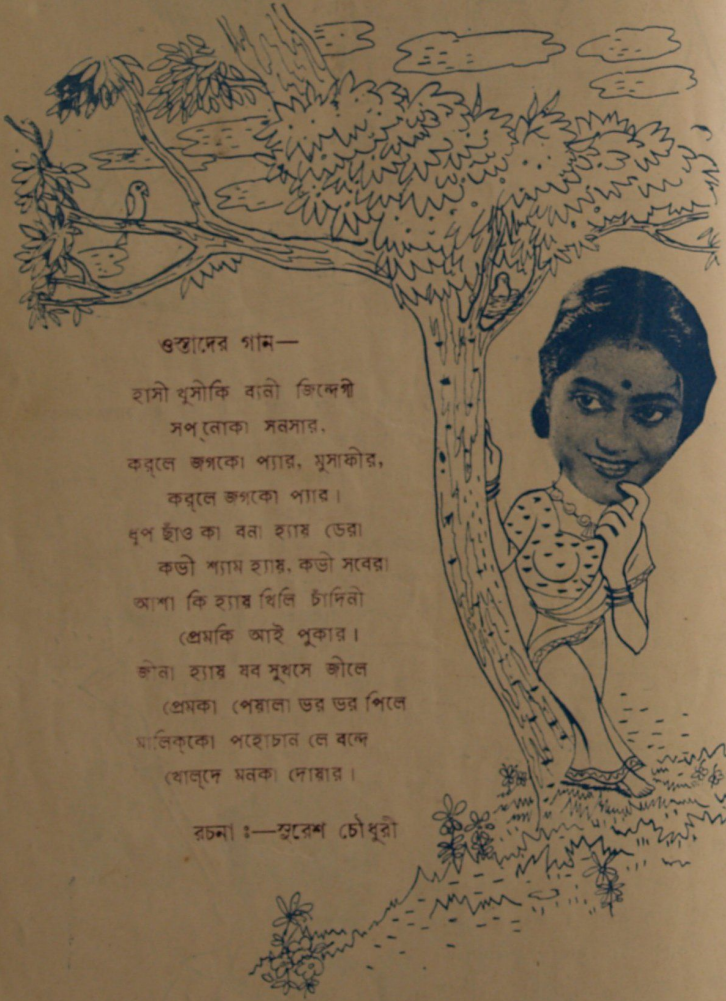 ওস্তাদের গান—
হাসী খুসীকি বানী জিন্দেগী
সপ্‌নোকা সনসার,
করলে জগকো প্যার, মুসাফীর,
করলে জগকো প্যার।
ধূপ ছাঁও কা বনা হ্যায় ডেরা
কভী শ্যাম হ্যায়, কভী সবেরা
আশা কি হ্যায় খিলি চাঁদিনী
প্রেমকি আই পুকার।
জীনা হ্যায় যব সুখসে জীলে
প্রেমকা পেয়ালা ভর ভর পিলে
মালিক্‌কো পহোচান লে বন্দে
খোল্‌দে মনকা দোয়ার।
রচনা ঃ—সুরেশ চৌধুরী